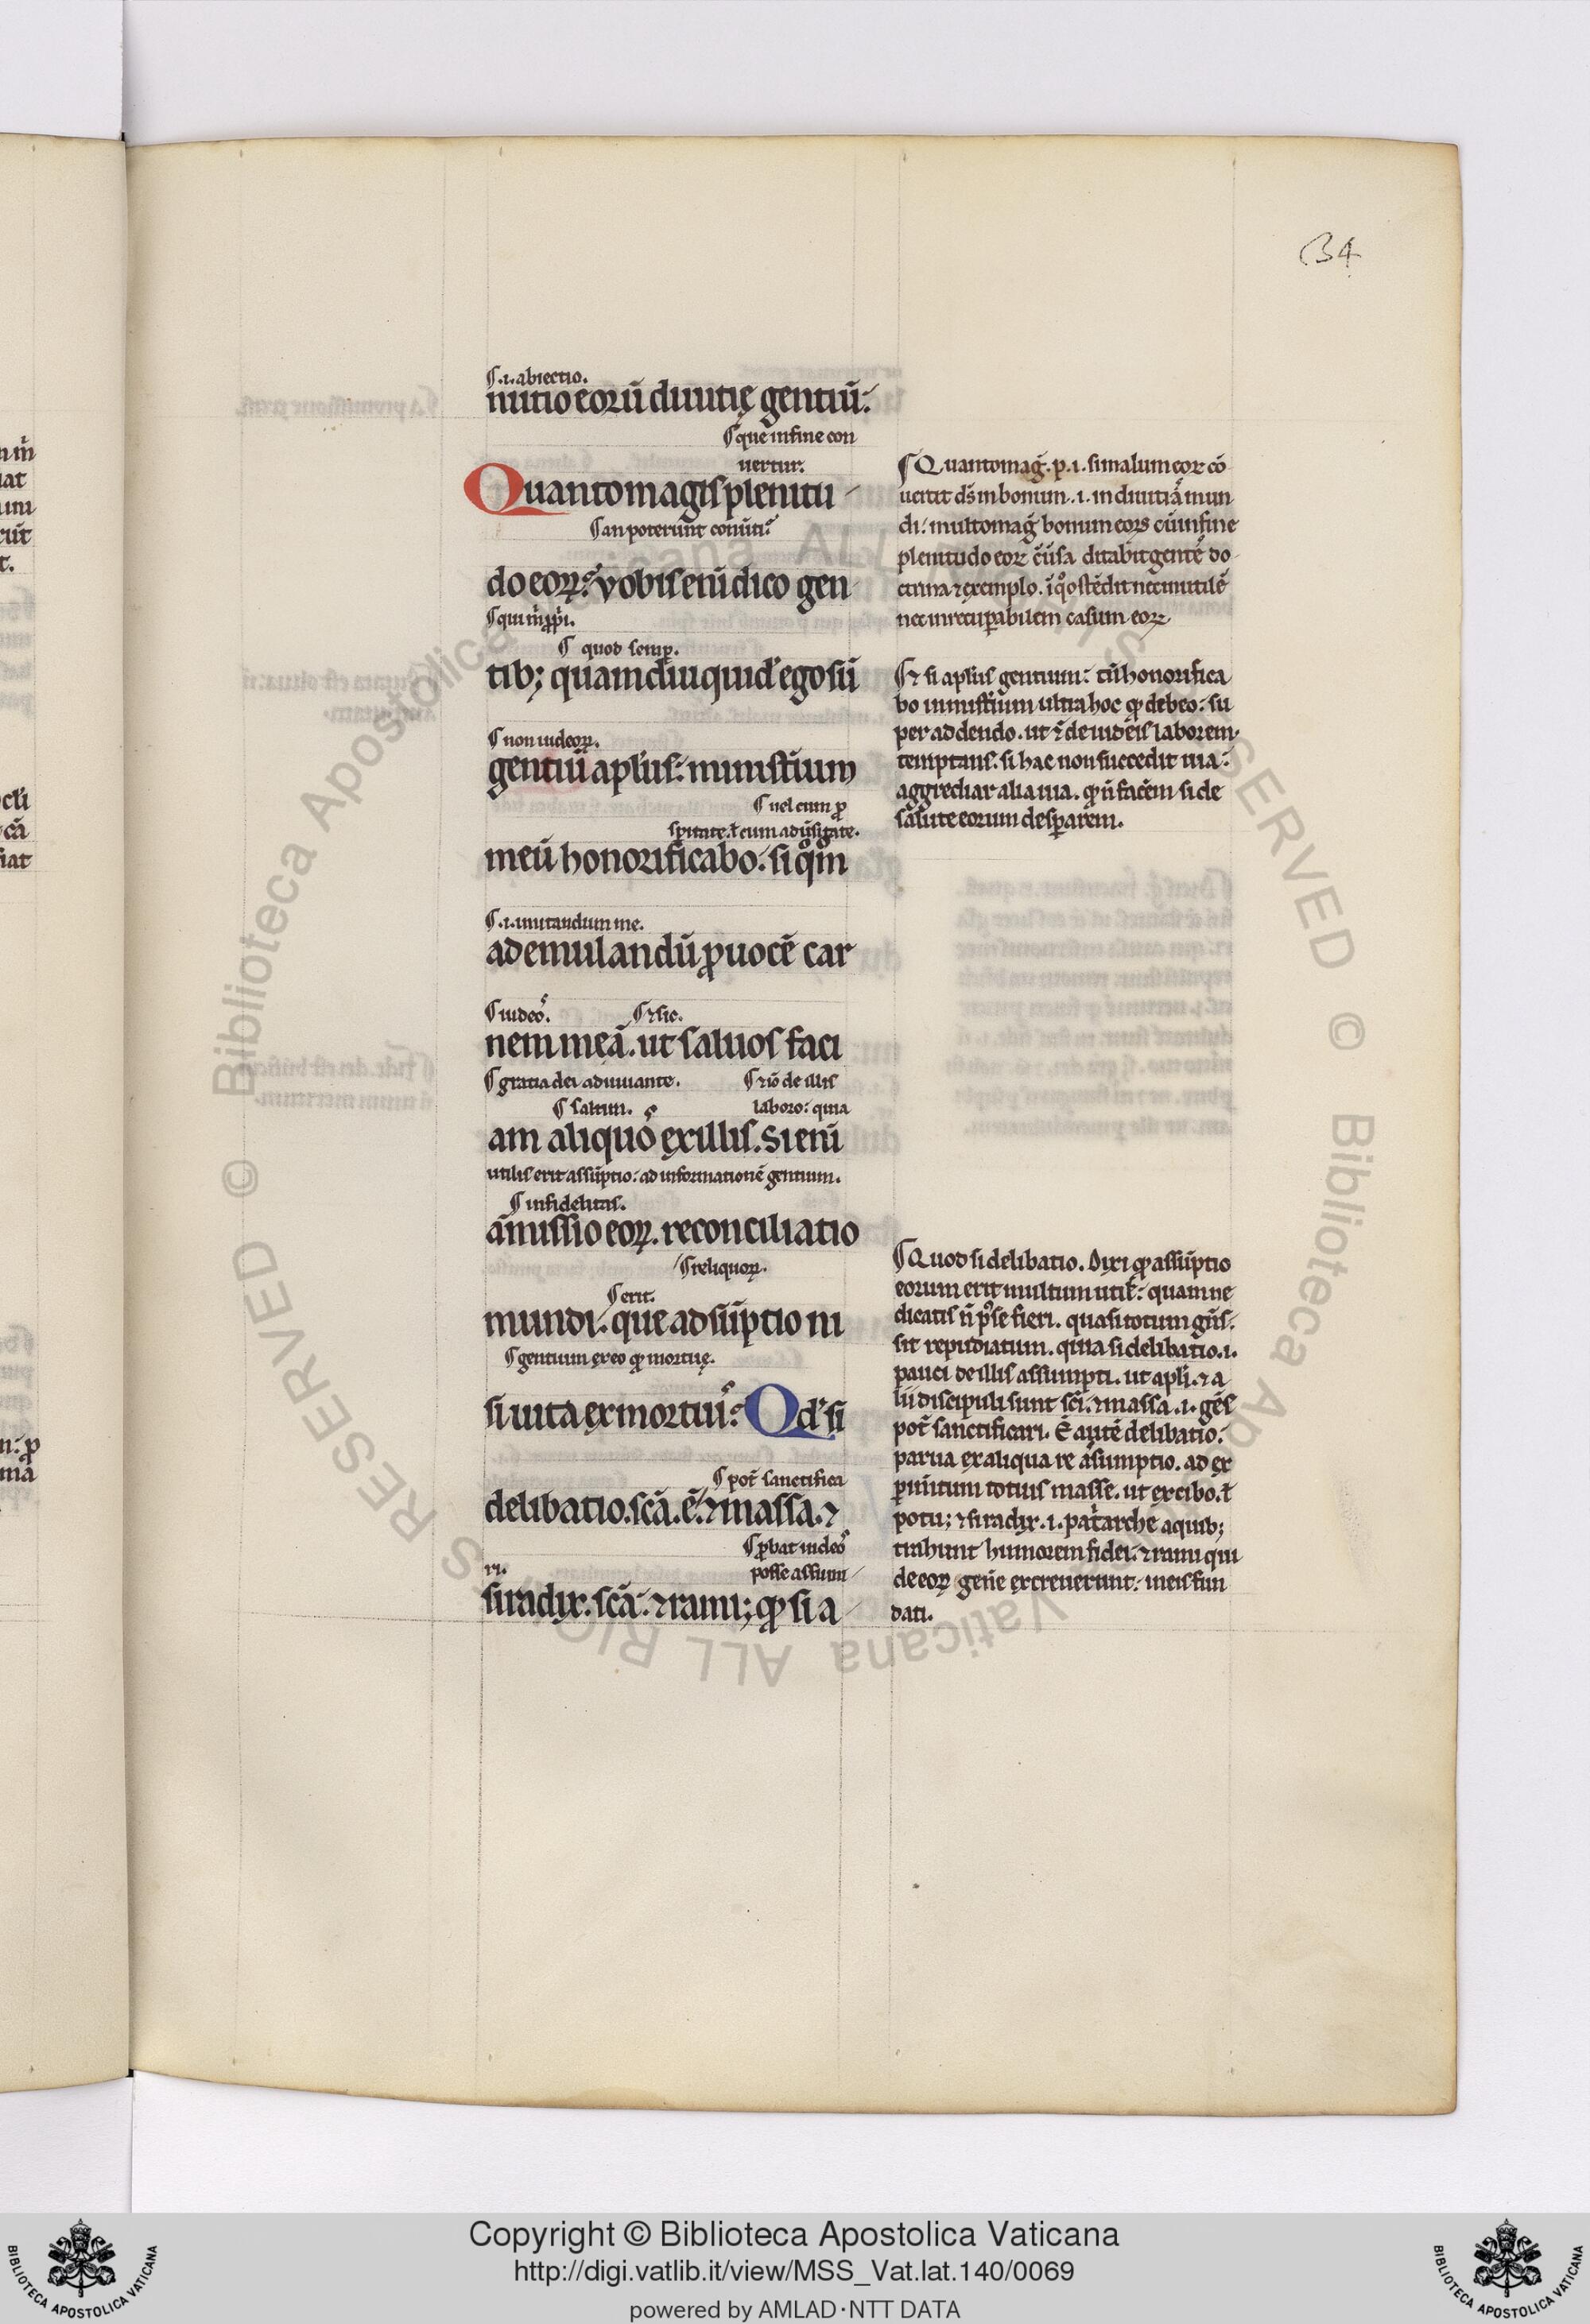 34
¶ .i. abiectio.
nutio eorū diuitię gentiū:
¶ que in fine con
uertur.
Quanto magis plenitu
¶ an poterunt conuti?
do eoꝝ? vobis enī dico gen
¶ qui m̄ ꝓpi.
¶ quod semꝑ.
tib; quamdiu quid' ego sū
¶ non iudeoꝝ.
gentiū apl'us: ministium
¶ uel cum ꝓ
spitate. ł cum adūsitate.
meū honorificabo: si qͦm̄
¶ .i. imitandum me.
ad emulandū ꝓuocē car
¶ iudeos. ¶ ⁊ sic.
nem meā. ut saluos faci
¶ gratia dei adiuuante. ¶ ⁊ iō de illis
¶ saltim. laboro: quia
am aliquos ex illis. Si enī
utilis erit assūptio: ad informationē gentium.
¶ infidelitas.
āmissio eoꝝ. reconciliatio
¶ reliquoꝝ.
¶ erit.
mundi: que adsūptio ni
¶ gentium ex eo ꝙ mortuę.
si uita ex mortuis? Qd' si
¶ pot̄ sanctifica
delibatio. scā. ē. ⁊ massa. ⁊
¶ ꝓbat iudeos
ri. posse assum
si radix. scā: ⁊ rami; ꝙ si a
¶ Quanto maḡ. p. i. si malum eoꝝ cō
uertit ds̄ in bonum. .i. in diuitiā mun
di: multo maḡ bonum eoꝝ cū in fine
plenitudo eoꝝ cūsa ditabit gentē do
ctrina ⁊ exemplo. ī qͦ ostēdit nec inutilē
nec inrecuꝑabilem casum eoꝝ.
¶ Et si apl'us gentium: tn̄ honorifica
bo ministīum ultra hoc ꝙ debeo: su
per addendo. ut ⁊ de iudeis laborem.
temptans. si hac non succedit uia:
aggrediar alia uia. ꝙ n̄ facēm si de
salute eorum desꝑarem.
¶ Quod si delibatio. Dixi ꝙ assūptio
eorum erit multum util': quam ne
dicatis n̄ posse fieri. quasi totum gn̄s.
sit repudiatum. quia si delibatio. .i.
pauci de illis assumpti. ut apl'i. ⁊ a
lii discipuli sunt sci: ⁊ massa .i. gēs
pot̄ sanctificari. Ē autē delibatio:
parua ex aliqua re assumptio. ad ex
pimtum totius masse. ut ex cibo. ł
potu; ⁊ si radix .i. patarche a quib;
trahunt humorem fidei: ⁊ rami qui
de eoꝝ gene excreuerunt: in eis fun
dati.
Copyright © Biblioteca Apostolica Vaticana
http://digi.vatlib.it/view/MSS_Vat.lat.140/0069
powered by AMLAD·NTT DATA
BIBLIOTECA APOSTOLICA VATICANA
BIBLIOTECA APOSTOLICA VATICANA
© Biblioteca Apostolica Vaticana ALL RIGHTS RESERVED © Biblioteca Apostolica Vaticana ALL RIGHTS RESERVED